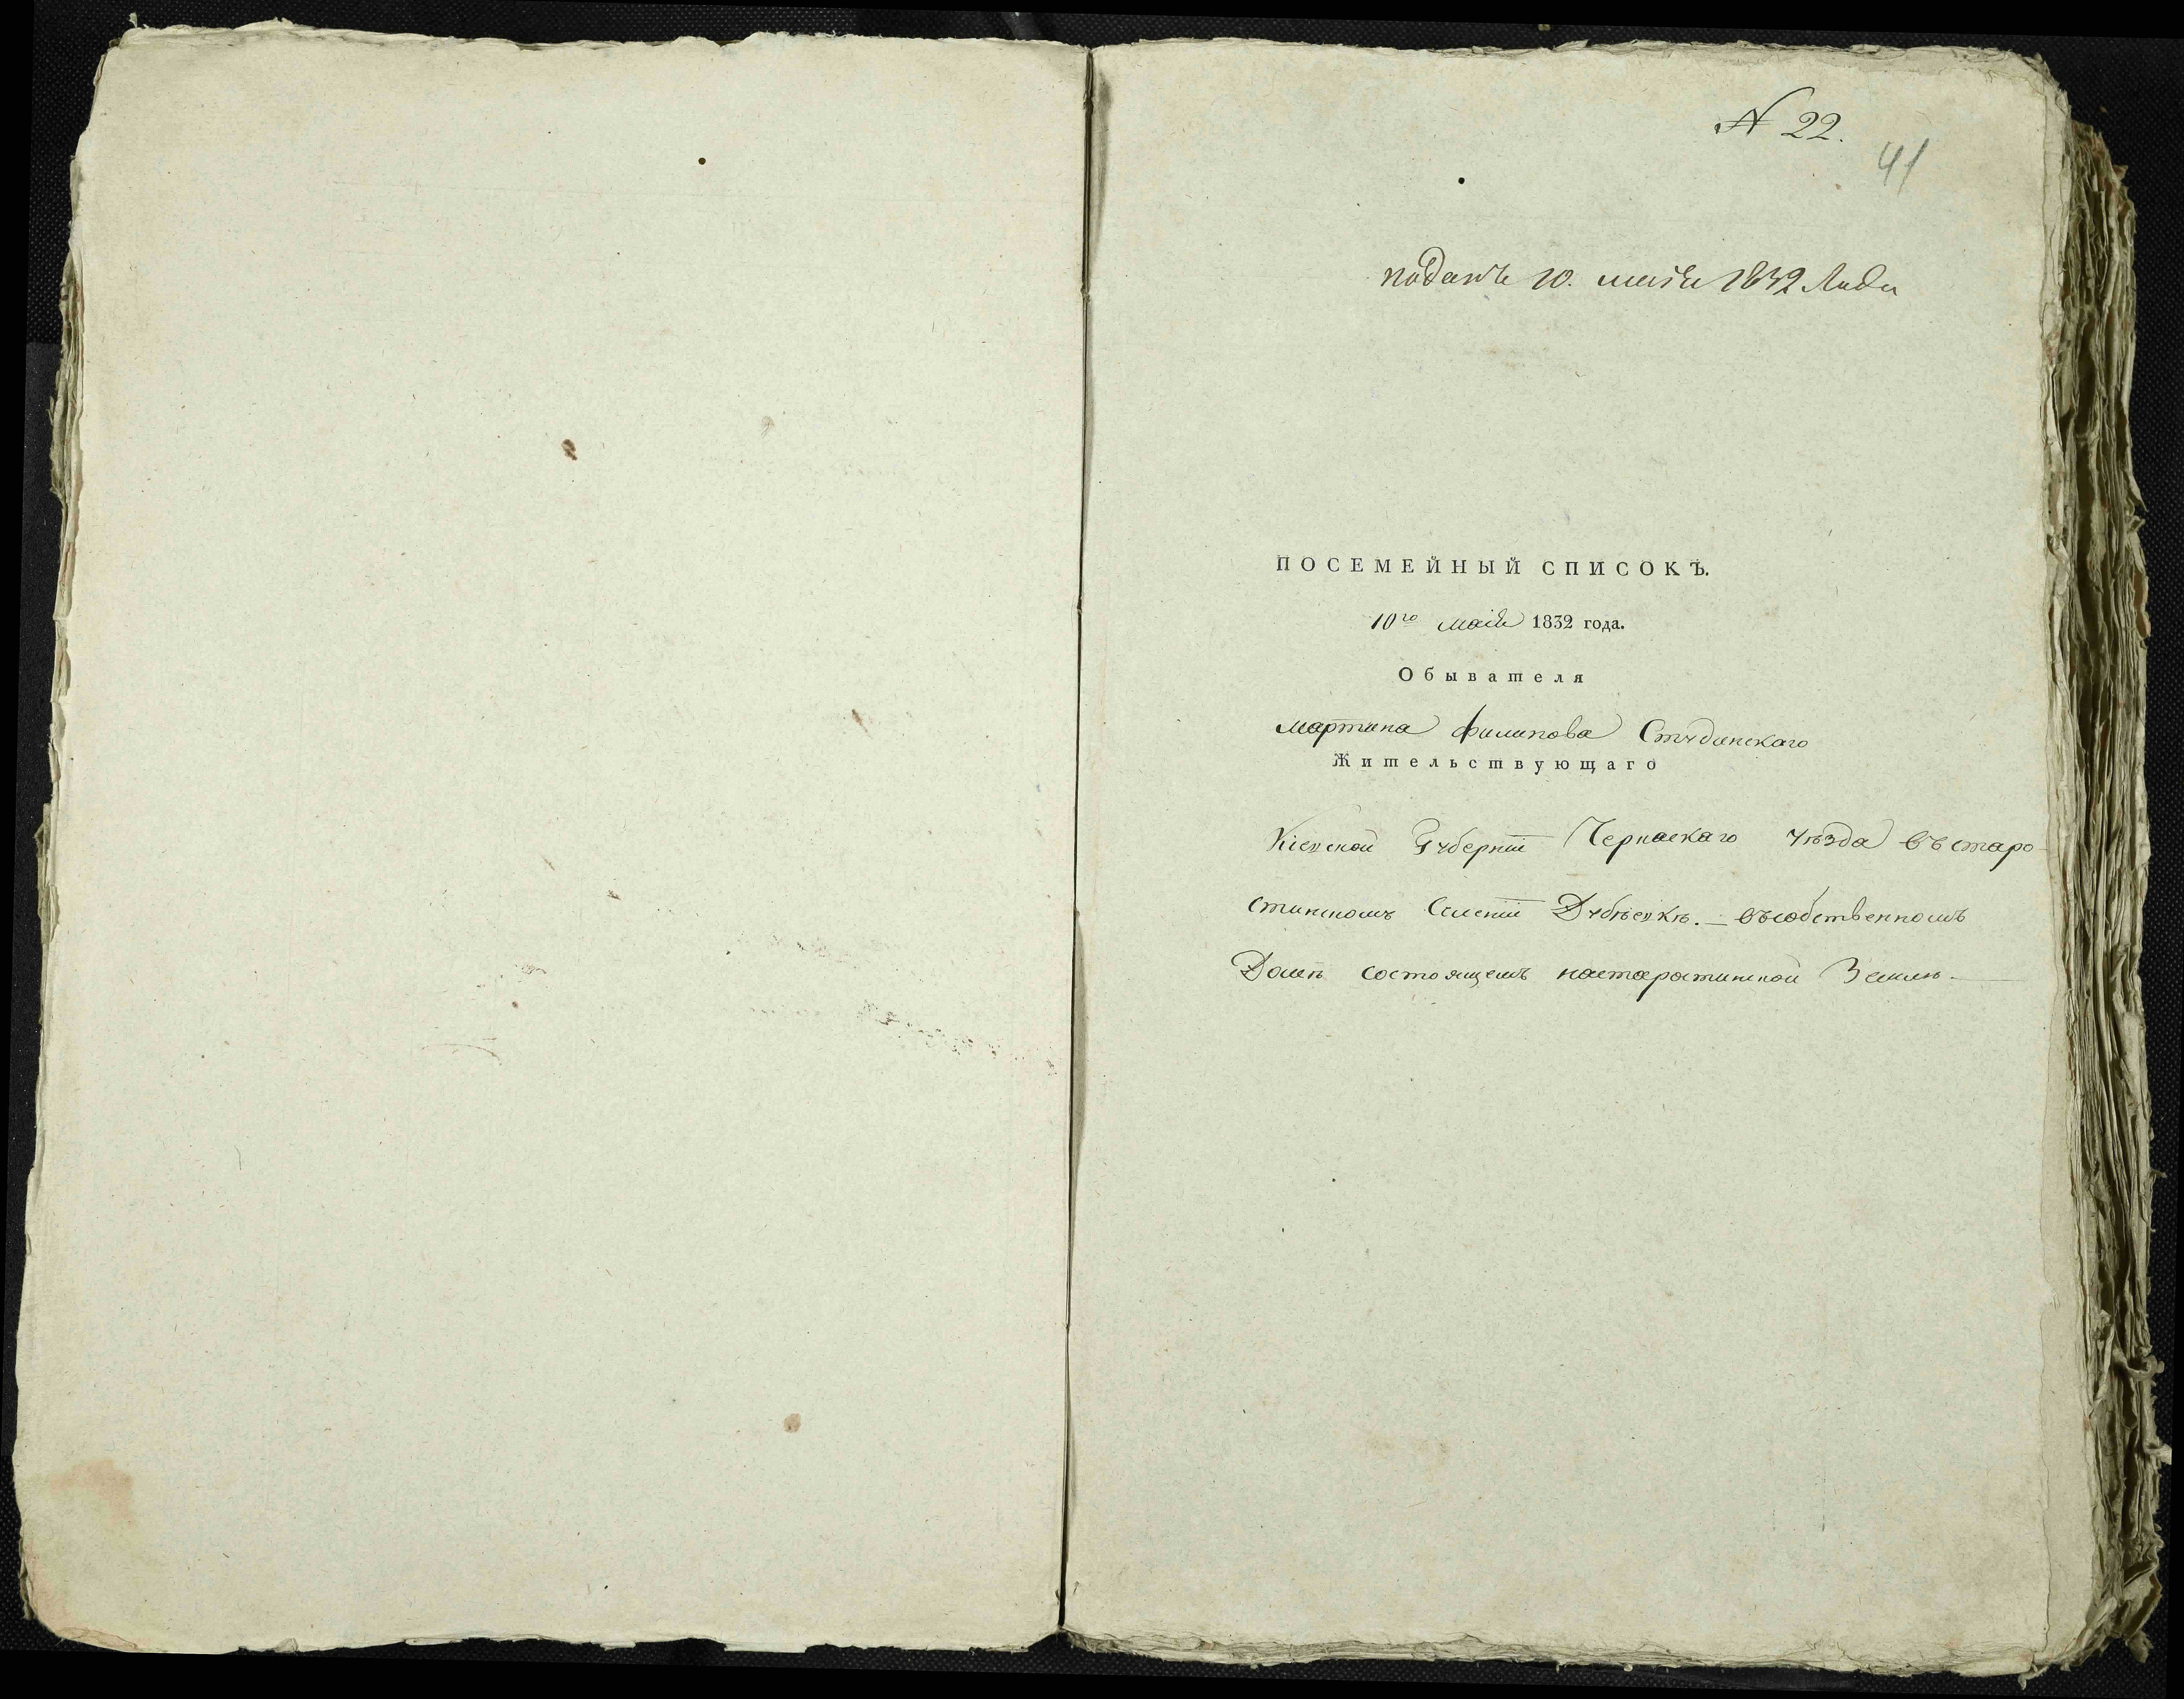 № 22.
41
поданъ 10. маія 1832 года
ПОСЕМЕЙНЫЙ СПИСОКЪ.
10го маія 1832 года.
Обывателя
Мартина Филипова Студинскаго
Жительствующаго
Кіевской Губерніи Черкаскаго уѣзда въ старо-
стинскомъ Селеніи Дубѣевкѣ. — въ собственномъ
Домѣ состоящемъ на старостинской Землѣ. —